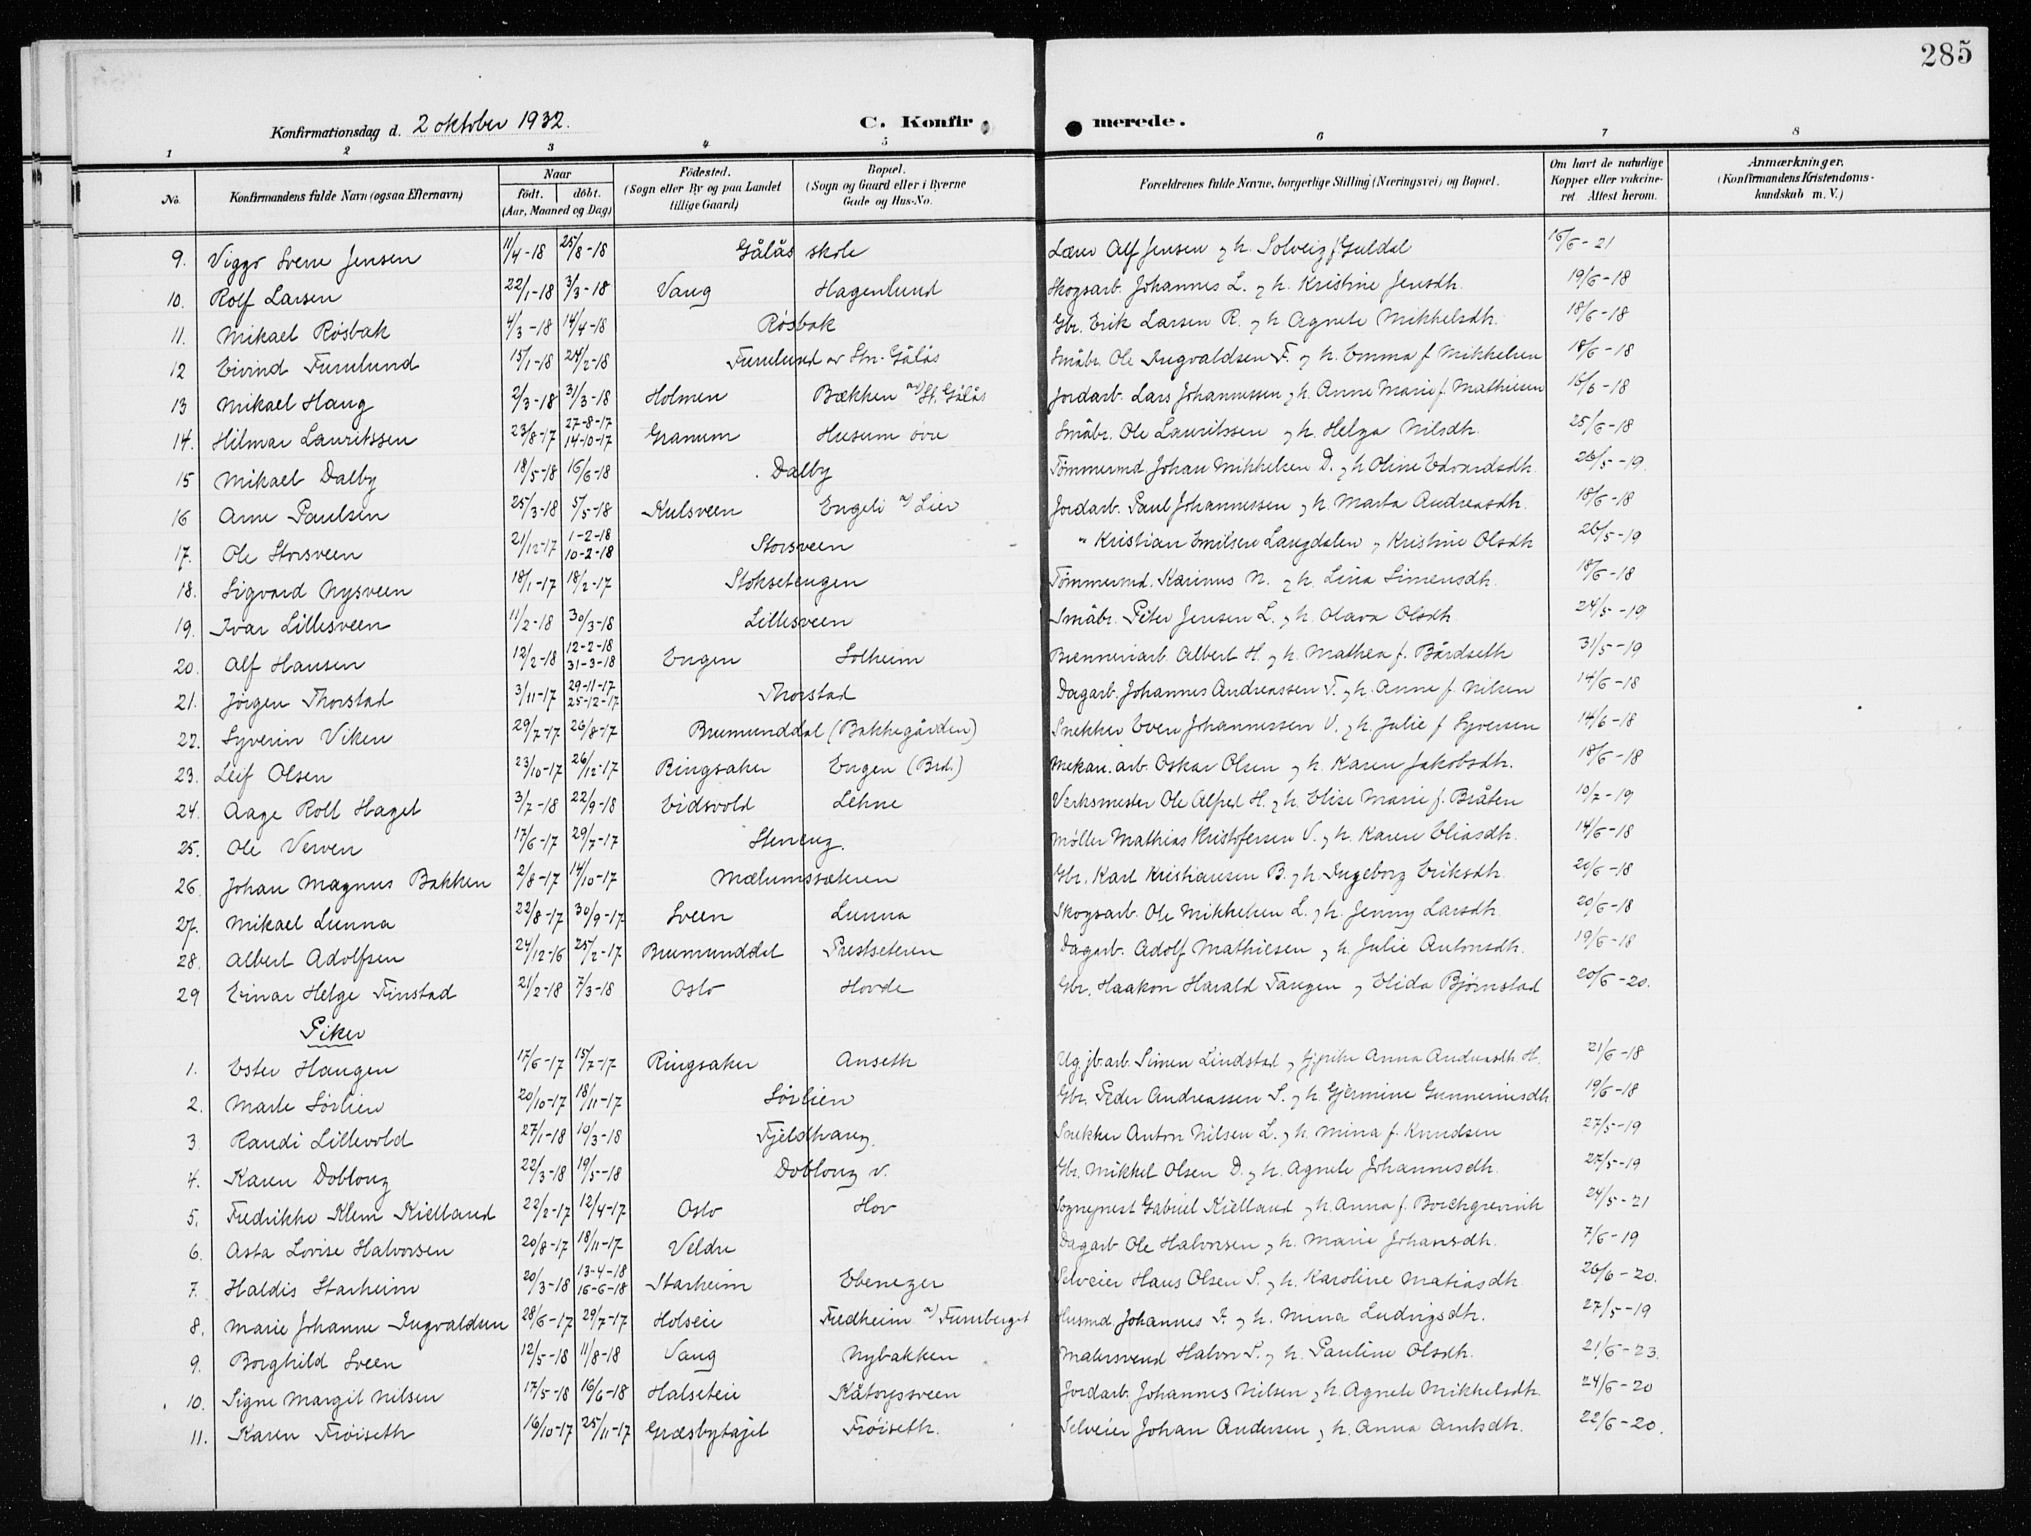 285
Konfirmationsdag d. 2 oktober 1932.
C. Konfirmerede.
1 2 3 4 5 6 7 8
No. Konfirmandens fulde Navn (ogsaa Efternavn) Naar født. døbt. (Aar, Maaned og Dag) Fødested. (Sogn eller By og paa Landet tillige Gaard) Bopæl. (Sogn og Gaard eller i Byerne Gade og Hus-No. Forældrenes fulde Navne, borgerlige Stilling (Næringsvei) og Bopæl. Om havt de naturlige Kopper eller vakcineret. Attest herom. Anmærkninger. (Konfirmandens Kristendomskundskab m. V.)
9. Viggo Sverre Jensen 11/4-18 25/8-18 Gålås skole Lærer Alf Jensen og h. Solveig f Guldal 16/6-21
10. Rolf Larsen 22/1-18 3/3-18 Vang Hagenlund Skogsarb. Johannes L. og h. Kristine Jensdh. 19/6-18
11. Mikael Røsbak 4/3-18 14/4-18 Røsbak Gbr. Erik Larsen R. og h Agnete Mikkelsdh. 18/6-18
12 Eivind Furulund 15/1-18 24/2-18 Furulund av Stn. Gålås Småbr. Ole Ingvaldsen F. og h. Emma f. Mikkelsen 18/6-18
13 Mikael Haug 2/3-18 31/3-18 Holmen Bækken av/ St. Gålås Jordarb. Lars Johannessen og h. Anne Marie f. Mathiesen 15/6-18
14. Hilmar Lauritssen 23/8-17 27-8-17 14-10-17 Granum Husum øvre Småbr. Ole Lauritssen og h. Helga Nilsdh. 25/6-18
15 Mikael Dalby 18/5-18 16/6-18 Dalby Tømmermd. Johan Mikkelsen D. og h Oline Edvardsdh. 26/5-19.
16 Arne Paulsen 25/3-18 5/5-18 Kulsveen Engeli a/ Lier Jordarb. Paul Johannessen og h. Marta Andreasdh. 18/6-18
17. Ole Storsveen 21/12-17 1-2-18 10-2-18 Storsveen " Kristian Emilsen Langdalen og Kristine Olsdh 26/5-19
18. Sigvard Nysveen 18/1-17 18/2-17 Stoksetengen Tømmermd. Karinus N. og h. Lina Simensdh. 18/6-18
19. Ivar Lillesveen 11/2-18 30/3-18 Lillesveen Småbr. Peter Jensen L. og h. Olava Olsdh. 24/5-19
20. Alf Hansen 12/2-18 12-2-18 31-3-18 Engen Solheim Brenneriarb. Albert H. og h. Mathea f. Bårdseth 31/5-19
21. Jørgen Thorstad 3/11-17 29-11-17 25-12-17 Thorstad Dagarb. Johannes Andreassen T. og h. Anne f. Nilsen 14/6-18
22. Syverin Viken 29/7-17 26/8-17 Brumunddal (Bakkegården) Snekker Even Johannessen V. og h. Julie f Syversen 14/6-18
23. Leif Olsen 23/10-17 26/12-17 Ringsaker Engen (Brd.) Mekan. arb. Oskar Olsen og h. Karen Jakobsdh. 18/6-18
24. Aage Rolf Haget 3/7-18 22/9-18 Eidsvold Lehne Verksmester Ole Alfred H. og h. Elise Marie f. Bråten 10/7-19
25. Ole Verven 17/6-17 29/7-17 Steneng. Møller Mathias Kristofersen V. og h. Karen Eliasdh. 14/6-18
26. Johan Magnus Bakken 2/8-17 14/10-17 Mælumssæteren Gbr. Karl Kristiansen B. og h. Ingeborg Eriksdh. 20/6-18
27. Mikael Lunna 22/8-17 30/9-17 Sveen Lunna Skogsarb. Ole Mikkelsen L. og h. Jenny Larsdh. 20/6-18
28. Albert Adolfsen 24/12-16 25/2-17 Brumunddal Prestseteren Dagarb. Adolf Mathiesen og h. Julie Antonsdh. 19/6-18
29 Einar Helge Finstad 21/2-18 7/3-18 Oslo Hovde Gbr. Haakon Harald Tangen og Elida Bjørnstad 20/6-20.
Piker
1. Ester Haugen 17/6-17 15/7-17 Ringsaker Anseth Ug. jb.arb. Simen Lindstad og pike Anna Andreasdh H. 21/6-18
2. Marte Sørlien 20/10-17 18/11-17 Sørlien Gbr. Peder Andreassen S. og h. Gjermine Gunneriusdh 19/6-18
3 Randi Lillevold 27/1-18 10/3-18 Fjeldhaug. Snekker Anton Nilsen L. og h. Mina f. Knudsen 27/5-19
4. Karen Dobloug 22/3-18 19/5-18 Dobloug v. Gbr. Mikkel Olsen D. og h. Agnete Johannesdh. 27/5-19
5. Fredrikke Klem Kielland 22/2-17 12/4-17 Oslo Hov Sogneprest Gabriel Kielland og h. Anna f. Borchgrevink 24/5-21
6. Asta Lovise Halvorsen 20/8-17 18/11-17 Veldre Dagarb Ole Halvorsen og h. Marie Johansdh. 7/6-19
7. Haldis Starheim 20/3-18 13-4-18 16-6-18 Starheim Ebenezer Selveier Hans Olsen S. og h. Karoline Matiasdh. 26/6-20.
8. Marie Johanne Ingvaldsen 28/6-17 29/7-17 Holseie Fredheim a/ Furuberget Husmd Johannes F. og h. Mina Ludvigsdh. 27/5-19
9. Borghild Sveen 12/5-18 11/8-18 Vang Nybakken Malersvend Halvor S. og h. Pauline Olsdh. 21/6-23.
10. Signe Margit Nilsen 17/5-18 16/6-18 Halseteie Kåtorpsveen Jordarb. Johannes Nilsen og h. Agnete Mikkelsdh. 24/6-20
11. Karen Frøiseth 16/10-17 25/11-17 Græsbytajet Frøiseth. Selveier Johan Andersen og h. Anna Arntsdh. 22/6-20.